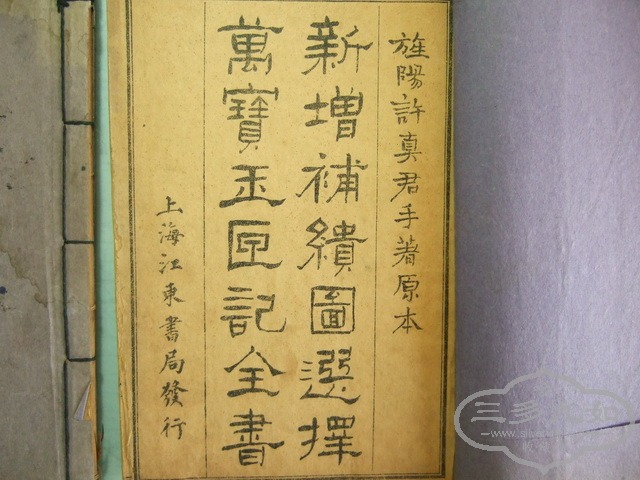 旌陽許真君手著原本
新增補繢圖選擇
萬寶玉匣記全書
上海江東書局發行